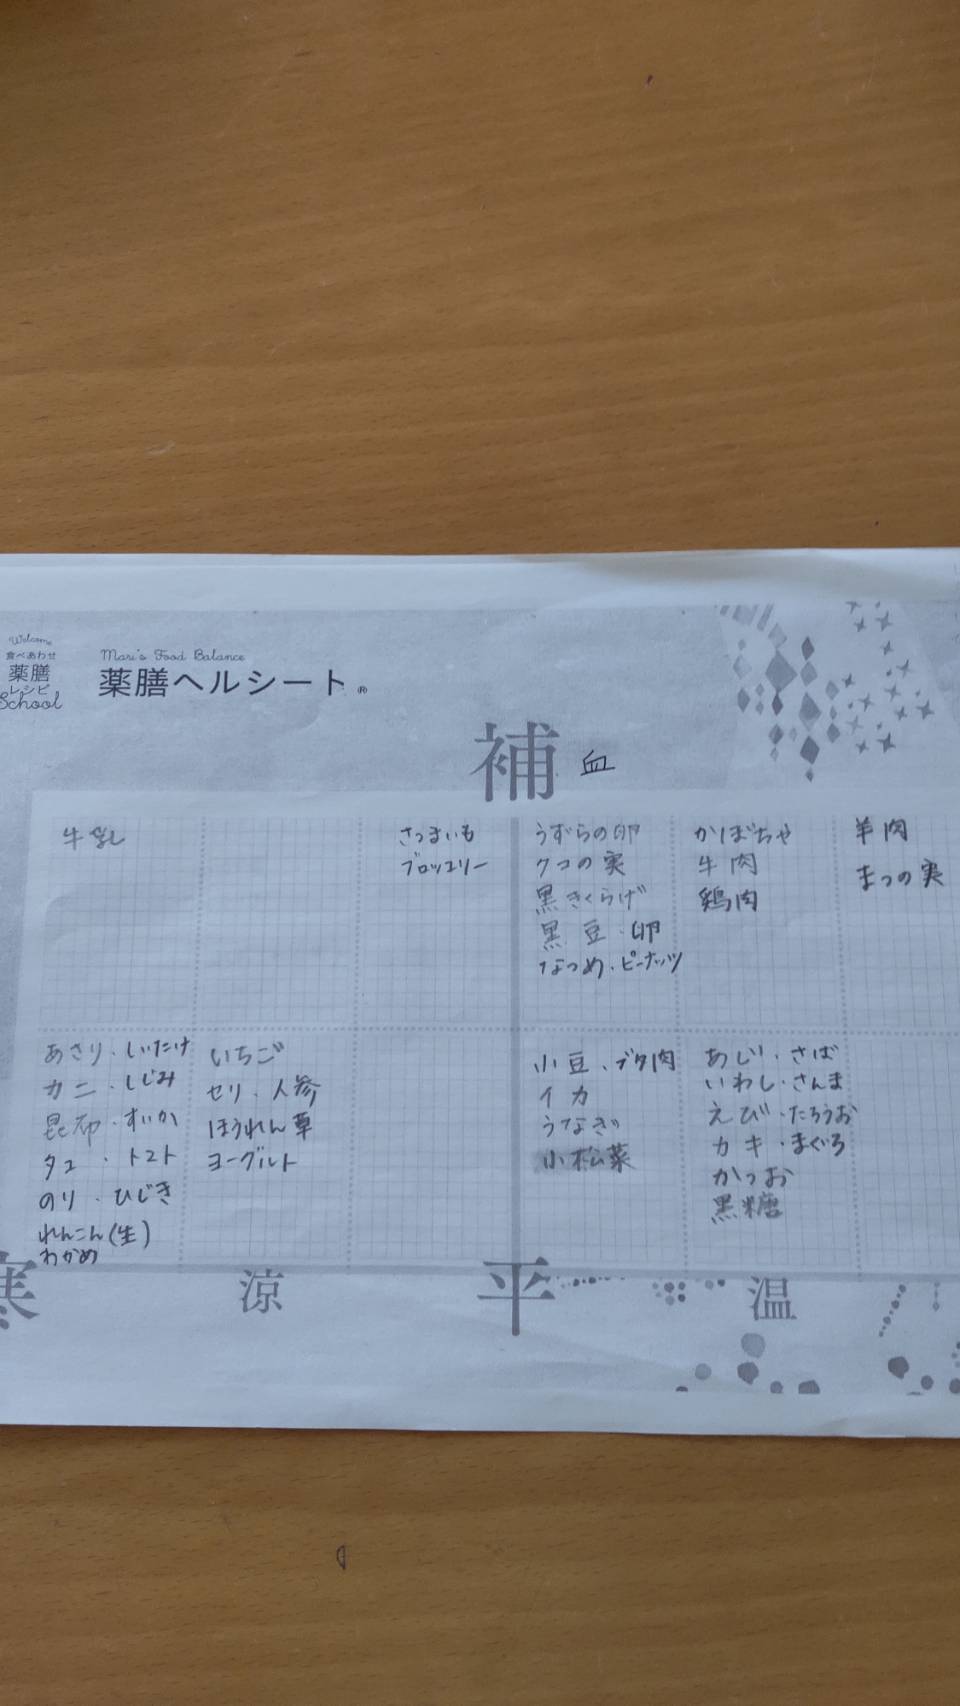 Welcome
食べあわせ
薬膳
レシピ
School
Mari's Food Balance
薬膳ヘルシート®
補 血
牛乳
さつまいも
ブロッコリー
うずらの卵
クコの実
黒きくらげ
黒豆・卵
なつめ・ピーナッツ
かぼちゃ
牛肉
鶏肉
羊肉
まつの実
あさり・しいたけ
カニ・しじみ
昆布・すいか
タコ・トマト
のり・ひじき
れんこん(生)
わかめ
いちご
セリ・人参
ほうれん草
ヨーグルト
小豆・ブタ肉
イカ
うなぎ
小松菜
あじ・さば
いわし・さんま
えび・たちうお
カキ・まぐろ
かつお
黒糖
寒 涼 平 温